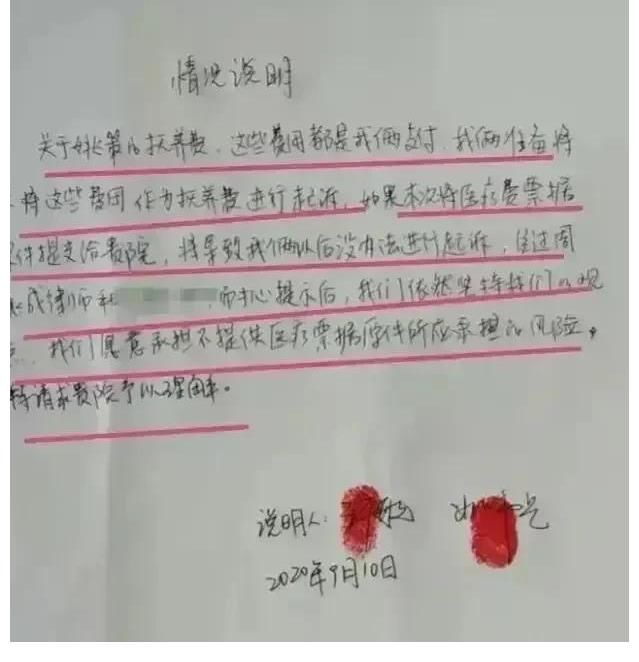 情况说明
关于姚策的扶养费，这些费用都是我俩支付，我俩准备将
将这些费用作为扶养费进行起诉，如果本次将医疗费票据
件提交给贵院，将导致我俩以后没办法进行起诉，经过周
成律师和 耐心提示后，我们依然坚持我们的观
，我们愿意承担不提供医疗票据原件所应承担的风险。
特请求贵院予以理解。
说明人：
2020年9月10日